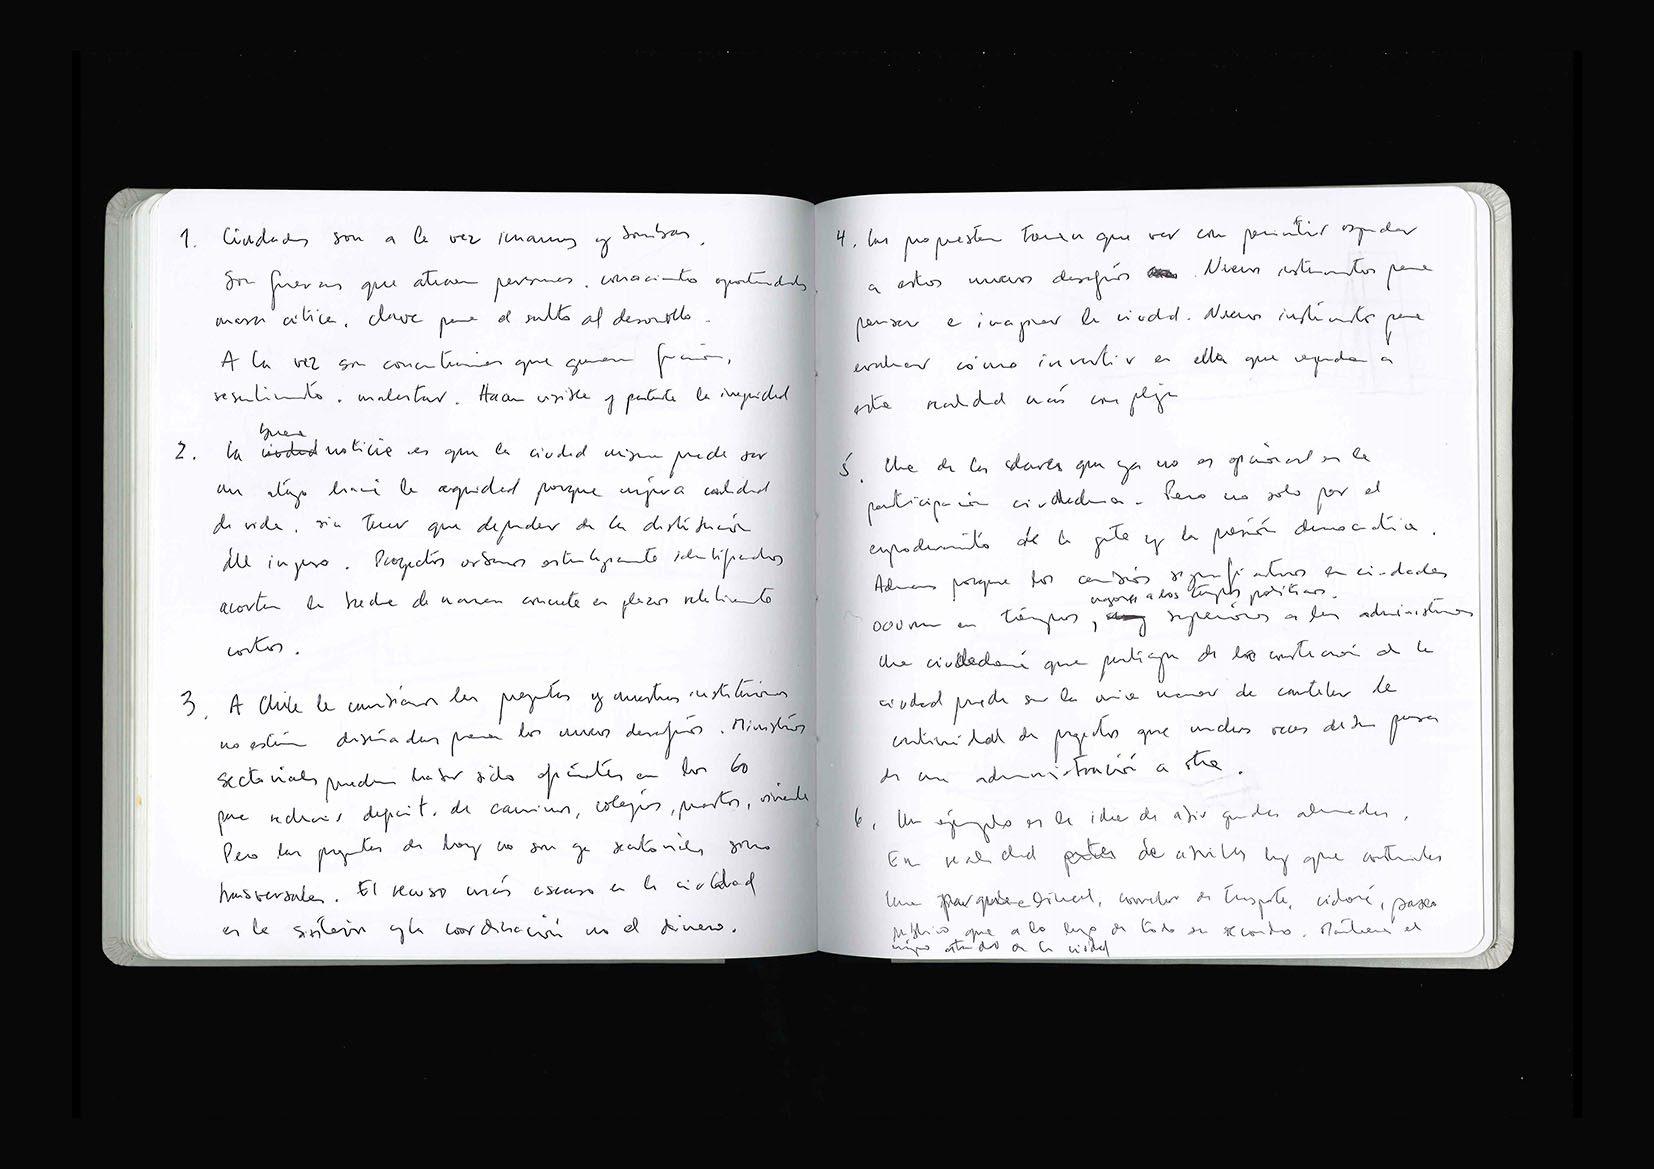 1. Ciudades son a la vez imanes y bombas.
Son fuerzas que atraen personas, conocimiento oportunidades,
masa crítica, clave para el salto al desarrollo.
A la vez son que generan fricción,
resentimiento, malestar. Hacen visible y patente la inequidad
2. La buena
ciudad noticia es que la ciudad misma puede ser
un atajo hacia la equidad porque mejora calidad
de vida, sin tener que depender de la distribución
del ingreso. Proyectos urbanos estratégicamente identificados
acortan la brecha de manera concreta en plazos relativamente
cortos.
3. A Chile le cambiaron las preguntas y nuestras instituciones
no están diseñadas para los nuevos desafíos. Ministerios
sectoriales pueden haber sido eficientes en los 60
para reducir deficit, de caminos, colegios, puertos, vivienda
Pero las preguntas de hoy no son ya sectoriales sino
transversales. El recurso más escaso en la ciudad
es la síntesis y la coordinación no el dinero.
4. Las propuestas tienen que ver con permitir responder
a estos nuevos desafíos. Nuevos instrumentos para
pensar e imaginar la ciudad. Nuevos instrumentos para
evaluar cómo invertir en ella que respondan a
esta realidad más compleja
5. Una de las claves que ya no es opcional es la
participación ciudadana. Pero no solo por el
empoderamiento de la gente y la presión democrática.
Además porque los cambios significativos en ciudades
mayores a los tiempos políticos.
ocurren en tiempos, superiores a las administraciones
Una ciudadanía que participa de la construcción de la
ciudad puede ser la única manera de cautelar la
continuidad de proyectos que muchas veces deben pasar
de una administración a otra.
6. Un ejemplo es la idea de abrir grandes alamedas.
En realidad antes de abrirlas hay que construirlas
Una parque lineal, corredor de transporte, ciclovía, paseo
público que a lo largo de todo su recorrido. Mantiene el
mejor estándar de la ciudad